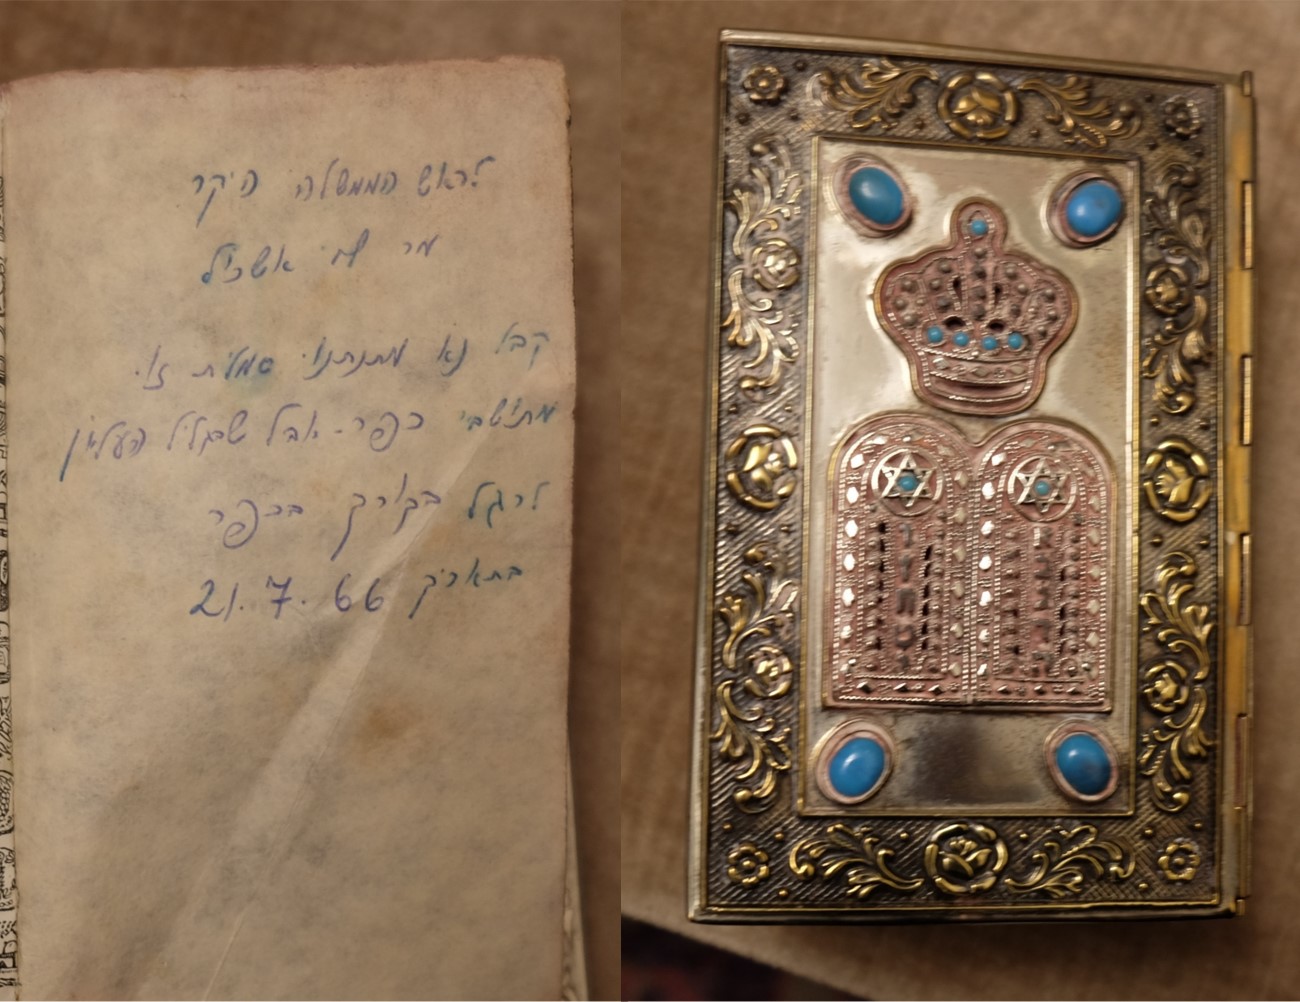 לראש הממשלה היקר
מר לוי אשכול
קבל נא מתנתנו סמלית זו.
מתושבי כפר-אבל שבגליל העליון
לרגל בקורך בכפר
בתאריך 21.7.66